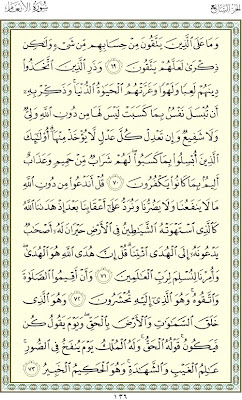 الجزء السابع سورة الأنعام
وَمَا عَلَى ٱلَّذِينَ يَتَّقُونَ مِنْ حِسَابِهِم مِّن شَىْءٍ وَلَٰكِن
ذِكْرَىٰ لَعَلَّهُمْ يَتَّقُونَ ٦٩ وَذَرِ ٱلَّذِينَ ٱتَّخَذُوا۟
دِينَهُمْ لَعِبًا وَلَهْوًا وَغَرَّتْهُمُ ٱلْحَيَوٰةُ ٱلدُّنْيَا ۚ وَذَكِّرْ بِهِۦٓ
أَن تُبْسَلَ نَفْسٌۢ بِمَا كَسَبَتْ لَيْسَ لَهَا مِن دُونِ ٱللَّهِ وَلِىٌّ
وَلَا شَفِيعٌ وَإِن تَعْدِلْ كُلَّ عَدْلٍ لَّا يُؤْخَذْ مِنْهَآ ۗ أُو۟لَٰٓئِكَ
ٱلَّذِينَ أُبْسِلُوا۟ بِمَا كَسَبُوا۟ ۖ لَهُمْ شَرَابٌ مِّنْ حَمِيمٍ وَعَذَابٌ
أَلِيمٌۢ بِمَا كَانُوا۟ يَكْفُرُونَ ٧٠ قُلْ أَنَدْعُوا۟ مِن دُونِ ٱللَّهِ
مَا لَا يَنفَعُنَا وَلَا يَضُرُّنَا وَنُرَدُّ عَلَىٰٓ أَعْقَابِنَا بَعْدَ إِذْ هَدَىٰنَا ٱللَّهُ
كَٱلَّذِى ٱسْتَهْوَتْهُ ٱلشَّيَٰطِينُ فِى ٱلْأَرْضِ حَيْرَانَ لَهُۥٓ أَصْحَٰبٌ
يَدْعُونَهُۥٓ إِلَى ٱلْهُدَى ٱئْتِنَا ۗ قُلْ إِنَّ هُدَى ٱللَّهِ هُوَ ٱلْهُدَىٰ ۖ
وَأُمِرْنَا لِنُسْلِمَ لِرَبِّ ٱلْعَٰلَمِينَ ٧١ وَأَنْ أَقِيمُوا۟ ٱلصَّلَوٰةَ
وَٱتَّقُوهُ ۚ وَهُوَ ٱلَّذِىٓ إِلَيْهِ تُحْشَرُونَ ٧٢ وَهُوَ ٱلَّذِى
خَلَقَ ٱلسَّمَٰوَٰتِ وَٱلْأَرْضَ بِٱلْحَقِّ ۖ وَيَوْمَ يَقُولُ كُن
فَيَكُونُ ۚ قَوْلُهُ ٱلْحَقُّ ۚ وَلَهُ ٱلْمُلْكُ يَوْمَ يُنفَخُ فِى ٱلصُّورِ ۚ
عَٰلِمُ ٱلْغَيْبِ وَٱلشَّهَٰدَةِ ۚ وَهُوَ ٱلْحَكِيمُ ٱلْخَبِيرُ ٧٣
١٣٦